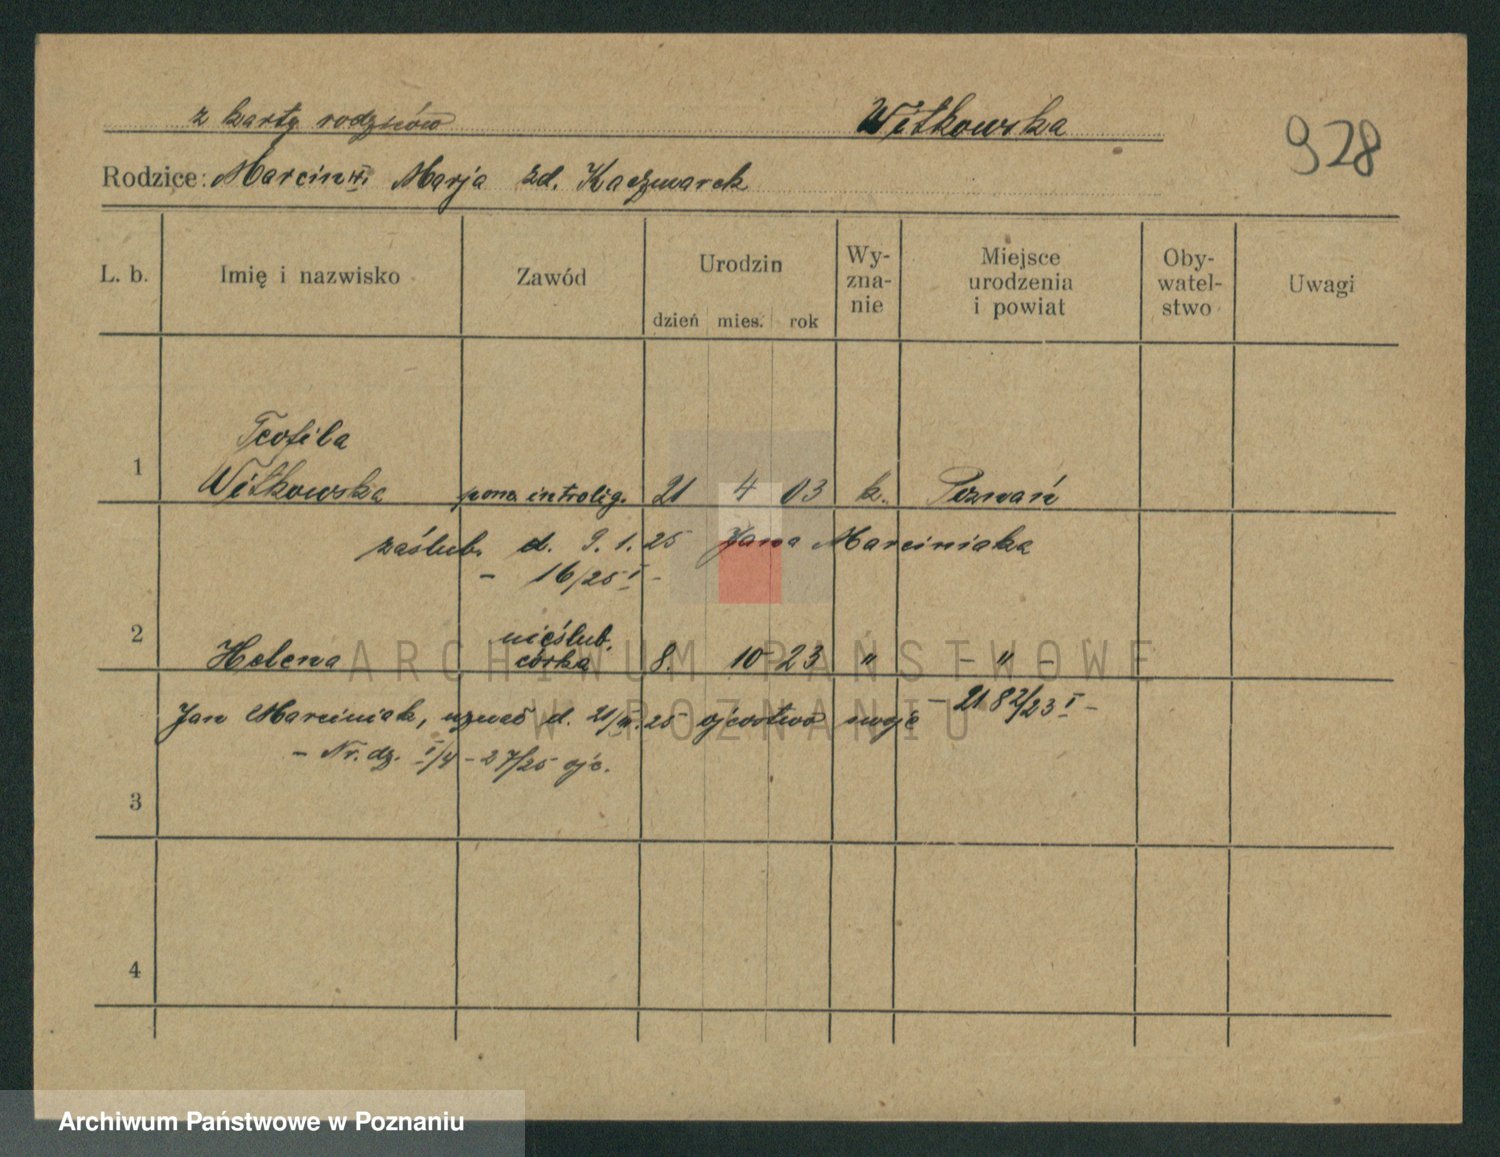 z karty rodziców Witkowska
928
Rodzice: Marcin i Marja zd. Kaczmarek
L. b. Imię i nazwisko Zawód Urodzin dzień mies. rok Wy-zna-nie Miejsce urodzenia i powiat Oby-watel-stwo Uwagi
Teofila
1 Witkowska pom. introlig. 21 4 03 k. Poznań
zaślub. d. 9. 1. 25 Jana Marciniaka
- 16/25 I -
2 nieślub.
Helena córka 8. 10 23 " - " -
Jan Marciniak, uznał d. 21/III. 25 ojcostwo swoje - 2182/23 I -
- Nr. dz. I/4 - 27/25 ojc.
3
4
ARCHIWUM PAŃSTWOWE
W POZNANIU
Archiwum Państwowe w Poznaniu